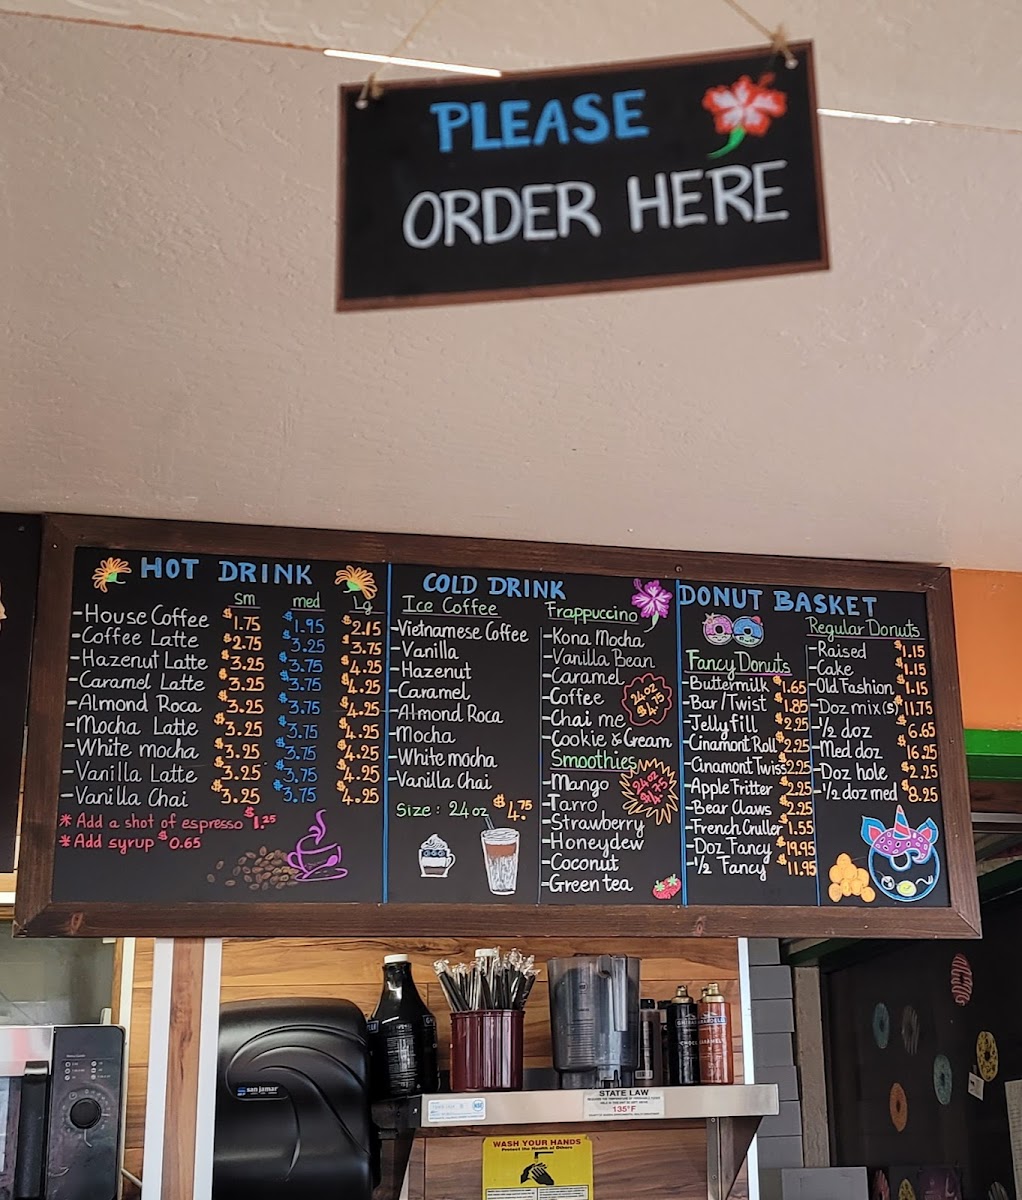 PLEASE
ORDER HERE
HOT DRINK
sm med Lg
-House Coffee $1.75 $1.95 $2.15
-Coffee Latte $2.75 $3.25 $3.75
-Hazenut Latte $3.25 $3.75 $4.25
-Caramel Latte $3.25 $3.75 $4.25
-Almond Roca $3.25 $3.75 $4.25
-Mocha Latte $3.25 $3.75 $4.25
-White mocha $3.25 $3.75 $4.25
-Vanilla Latte $3.25 $3.75 $4.25
-Vanilla Chai $3.25 $3.75 $4.25
* Add a shot of espresso $1.25
* Add syrup $0.65
COLD DRINK
Ice Coffee
-Vietnamese Coffee
-Vanilla
-Hazenut
-Caramel
-Almond Roca
-Mocha
-White mocha
-Vanilla Chai
Size: 24oz $4.75
Frappuccino
-Kona Mocha
-Vanilla Bean
-Caramel
-Coffee
-Chai me
-Cookie & Cream
24oz
$4.75
Smoothies
-Mango
-Tarro
-Strawberry
-Honeydew
-Coconut
-Green tea
24oz
$4.75
DONUT BASKET
Fancy Donuts
-Buttermilk $1.65
-Bar/Twist $1.85
-Jelly fill $2.25
-Cinamont Roll $2.25
-Cinamont Twiss $2.25
-Apple Fritter $2.25
-Bear Claws $2.25
-French Cruller $1.55
-Doz Fancy $19.95
-1/2 Fancy $11.95
Regular Donuts
-Raised $1.15
-Cake $1.15
-Old Fashion $1.15
-Doz mix(s) $11.75
-1/2 doz $6.65
-Med doz $16.25
-Doz hole $2.25
-1/2 doz med $8.25
san jamar
STATE LAW
135°F
WASH YOUR HANDS
Protect the Health of Others